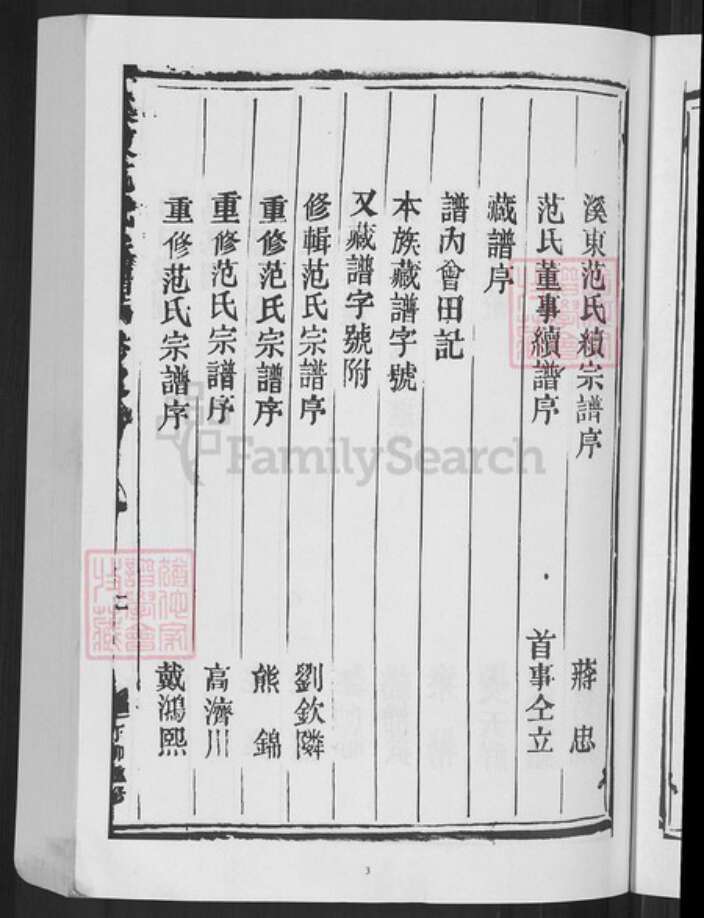 溪東范氏續宗譜序 蔣忠
范氏董事續譜序 首事仝立
藏譜序
譜內會田記
本族藏譜字號
又藏譜字號附
修輯范氏宗譜序 劉欽隣
重修范氏宗譜序 熊錦
重修范氏宗譜序 高濟川
重修范氏宗譜序 戴鴻熙
二
FamilySearch
3